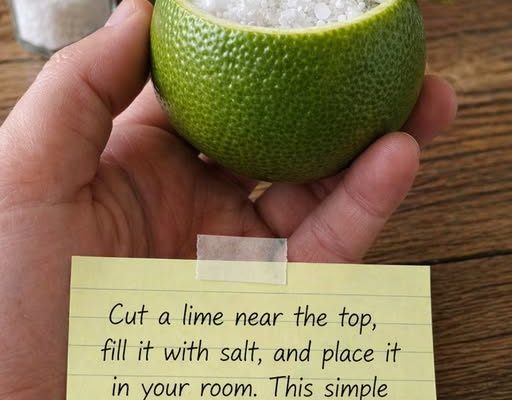 Cut a lime near the top,
fill it with salt, and place it
in your room. This simple